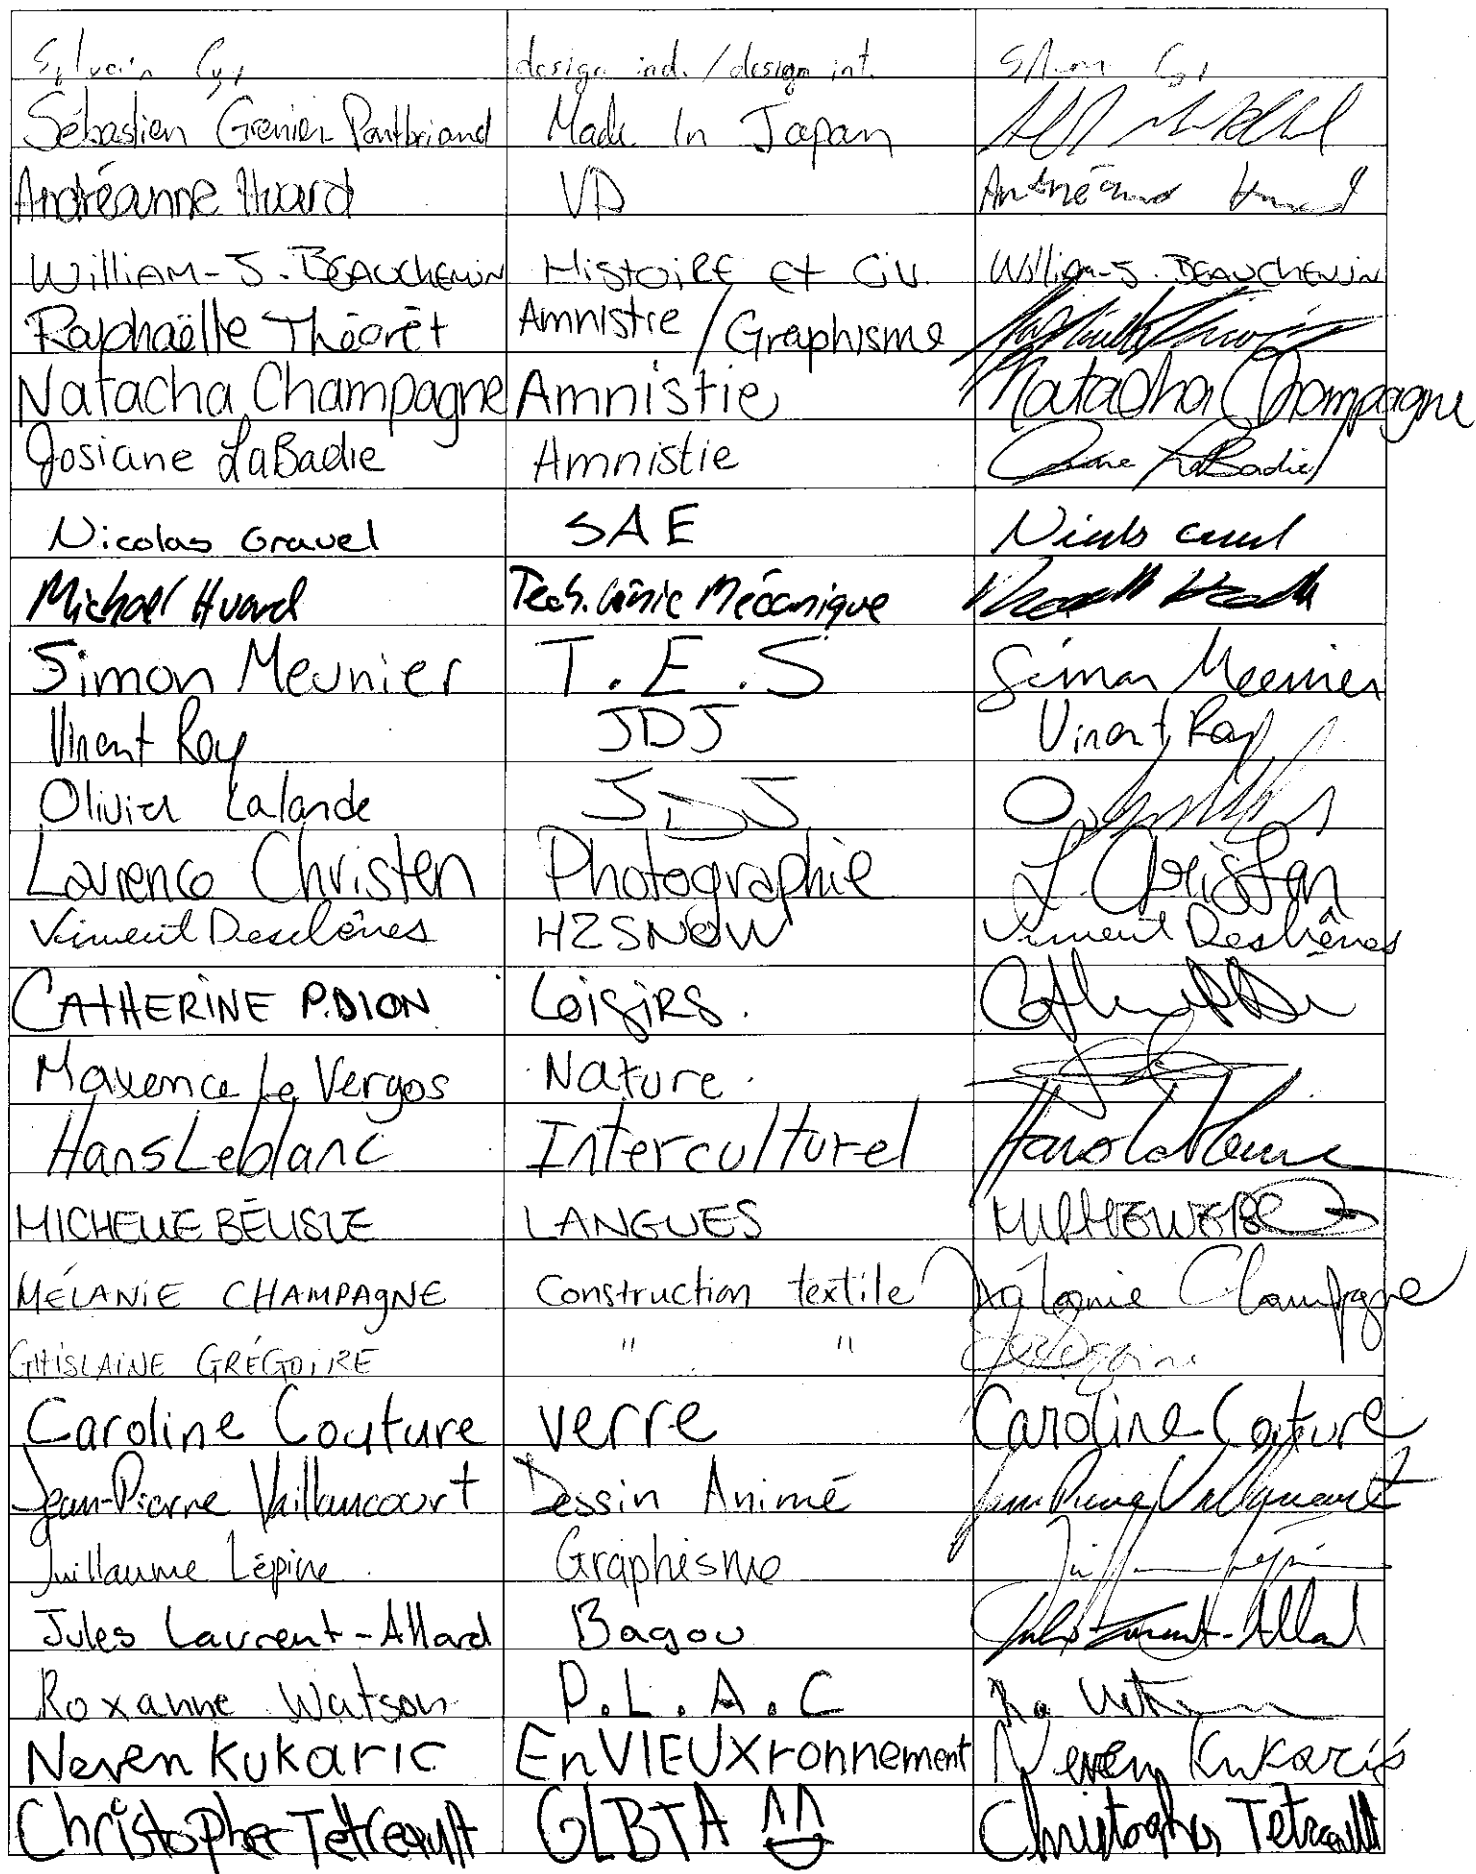 Sylvain Cyr design ind. / design int. Sylvain Cyr
Sébastien Grenier-Pontbriand Made In Japan
Andréanne Huard VP Andréanne Huard
William-J. BEAUCHEMIN Histoire et Civ. William-J. BEAUCHEMIN
Raphaëlle Théorêt Amnistie / Graphisme
Natacha Champagne Amnistie Natacha Champagne
Josiane LaBadie Amnistie LaBadie
Nicolas Gravel SAE
Michael Huard Tech. Génie Mécanique
Simon Meunier T.E.S Simon Meunier
Vincent Roy JDJ Vincent Roy
Olivier Lalande JDJ
Laurence Christen Photographie L. Christen
Vincent Deschênes H2SNOW Vincent Deschênes
CATHERINE P.DION LOISIRS.
Maxence Le Vergos Nature.
Hans Leblanc Interculturel
MICHELLE BÉLISLE LANGUES
MÉLANIE CHAMPAGNE Construction textile Mélanie Champagne
GHISLAINE GRÉGOIRE " "
Caroline Couture verre Caroline Couture
Jean-Pierre Vaillancourt Dessin Animé Jean-Pierre Vaillancourt
Guillaume Lépine Graphisme
Jules Laurent-Allard Bagou Jules Laurent-Allard
Roxanne Watson P.L.A.C
Neven Kukaric EnVIEUXronnement Neven Kukaric
Christopher Tetreault GLBTA ^^ Christopher Tetreault